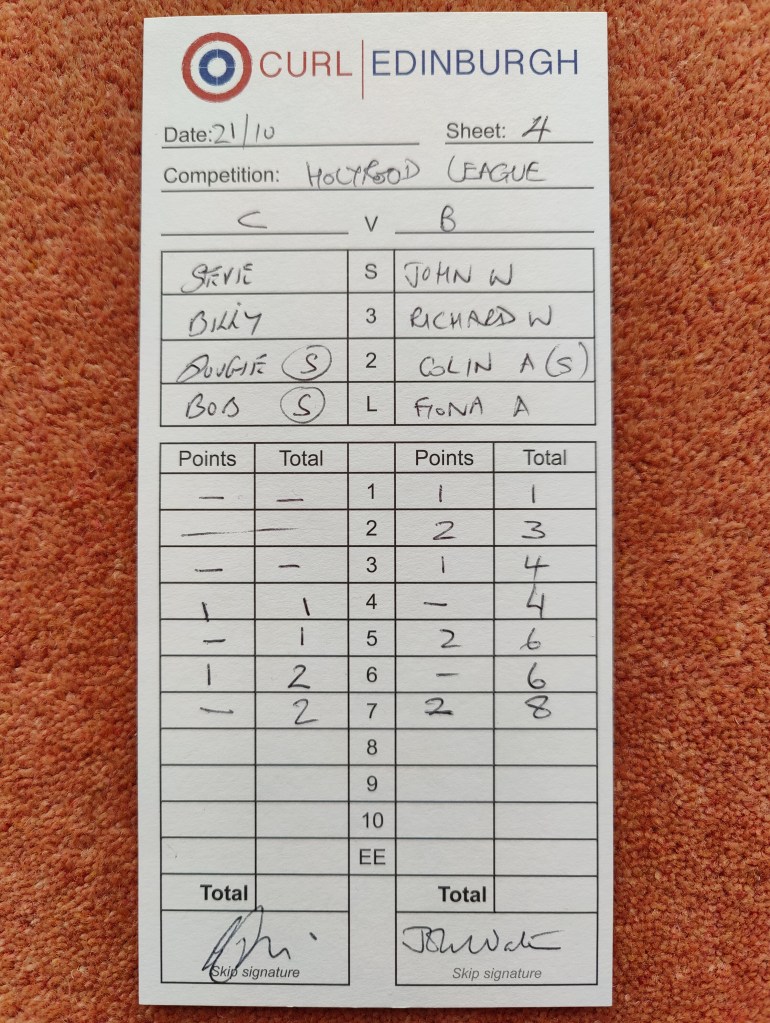 CURL | EDINBURGH
Date: 21/10 Sheet: 4
Competition: HOLYROOD LEAGUE
C V B
STEVIE S JOHN W
BILLY 3 RICHARD W
DOUGIE (S) 2 COLIN A (S)
BOB (S) L FIONA A
Points Total Points Total
— — 1 1 1
— 2 2 3
— — 3 1 4
1 1 4 — 4
— 1 5 2 6
1 2 6 — 6
— 2 7 2 8
8
9
10
EE
Total Total
Skip signature Skip signature